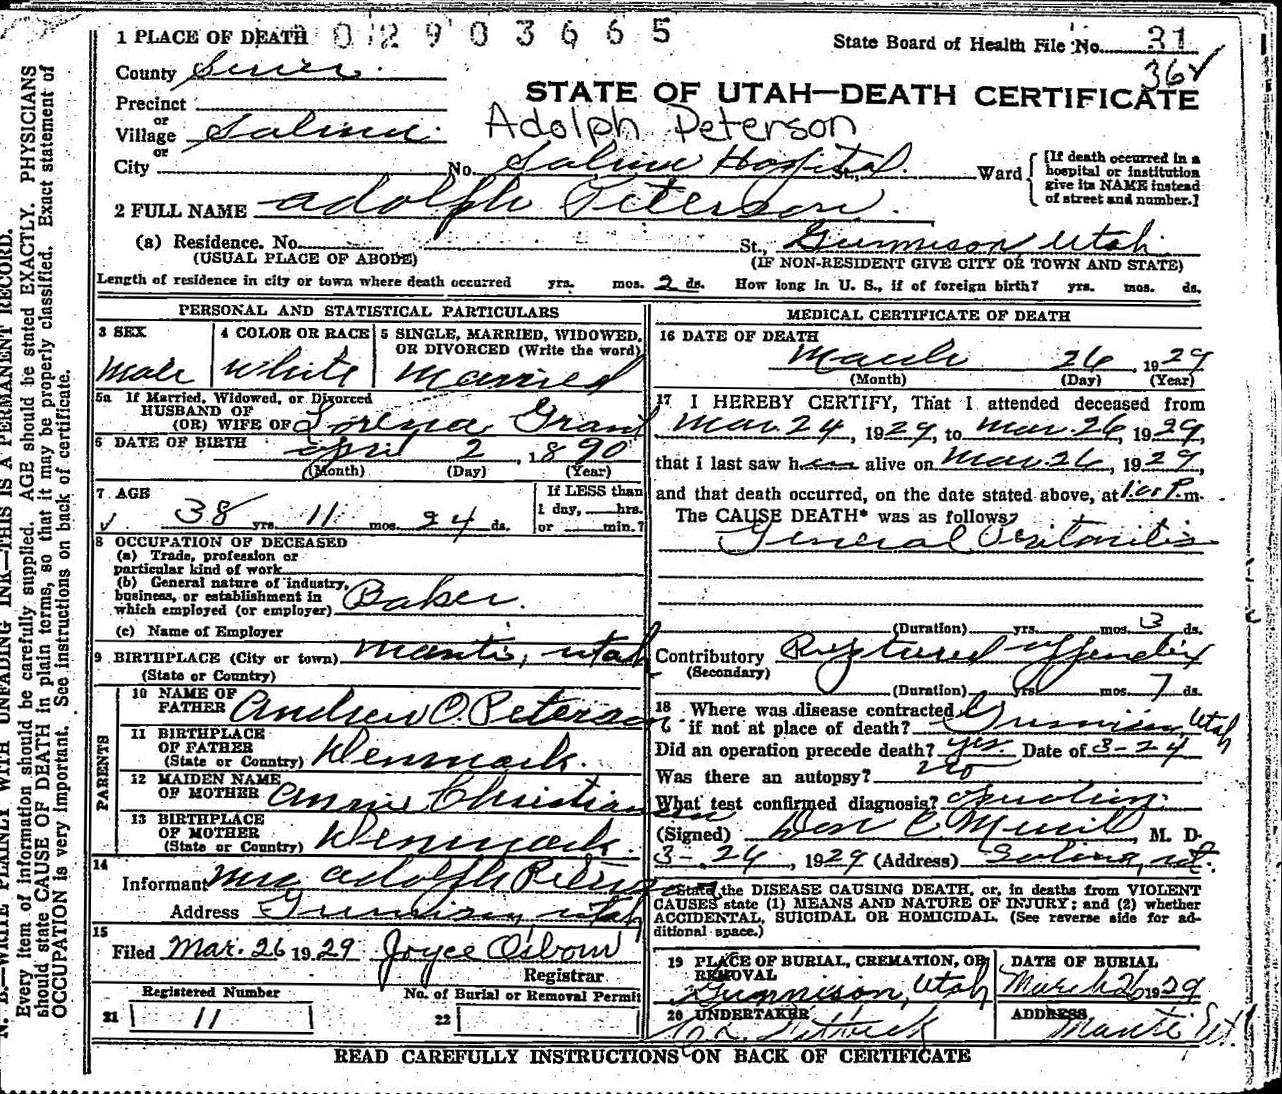 1 PLACE OF DEATH 0 2 9 0 3 6 6 5
State Board of Health File No. 31
36✓
County Sevier.
STATE OF UTAH—DEATH CERTIFICATE
Precinct
or
Village Salina. Adolph Peterson
or
City No. Salina Hospital. St., Ward
[If death occurred in a
hospital or institution
give its NAME instead
of street and number.]
2 FULL NAME Adolph Peterson.
(a) Residence. No. St., Gunnison, Utah.
(USUAL PLACE OF ABODE) (IF NON-RESIDENT GIVE CITY OR TOWN AND STATE)
Length of residence in city or town where death occurred yrs. mos. 2 ds. How long in U. S., if of foreign birth? yrs. mos. ds.
PERSONAL AND STATISTICAL PARTICULARS
3 SEX
Male
4 COLOR OR RACE
White
5 SINGLE, MARRIED, WIDOWED,
OR DIVORCED (Write the word)
Married
5a If Married, Widowed, or Divorced
HUSBAND OF
(OR) WIFE OF Lorena Grant
6 DATE OF BIRTH April 2, 1890
(Month) (Day) (Year)
7 AGE
✓ 38 yrs. 11 mos. 24 ds.
If LESS than
1 day, hrs.
or min.?
8 OCCUPATION OF DECEASED
(a) Trade, profession or
particular kind of work
(b) General nature of industry,
business, or establishment in
which employed (or employer) Baker.
(c) Name of Employer
9 BIRTHPLACE (City or town) Manti, Utah
(State or Country)
PARENTS
10 NAME OF
FATHER Andrew C. Peterson
11 BIRTHPLACE
OF FATHER
(State or Country) Denmark.
12 MAIDEN NAME
OF MOTHER Annie Christiansen
13 BIRTHPLACE
OF MOTHER
(State or Country) Denmark.
14
Informant Mrs Adolph Peterson
Address Gunnison, Utah
15
Filed Mar. 26 1929 Joyce Osborn
Registrar
Registered Number
21 11
No. of Burial or Removal Permit
22
MEDICAL CERTIFICATE OF DEATH
16 DATE OF DEATH
March 26, 1929
(Month) (Day) (Year)
17 I HEREBY CERTIFY, That I attended deceased from
Mar. 24, 1929, to Mar. 26, 1929,
that I last saw him alive on Mar. 26, 1929,
and that death occurred, on the date stated above, at P.m.
The CAUSE DEATH* was as follows?
General Peritonitis
(Duration) yrs. mos. 3 ds.
Contributory Ruptured Appendix
(Secondary)
(Duration) yrs. mos. 7 ds.
18 Where was disease contracted
if not at place of death? Gunnison, Utah
Did an operation precede death? yes. Date of 3-24
Was there an autopsy? no
What test confirmed diagnosis? Operation.
(Signed) Don C Merrill, M. D.
3-26, 1929 (Address) Salina, Ut.
*State the DISEASE CAUSING DEATH, or, in deaths from VIOLENT
CAUSES state (1) MEANS AND NATURE OF INJURY; and (2) whether
ACCIDENTAL, SUICIDAL OR HOMICIDAL. (See reverse side for ad-
ditional space.)
19 PLACE OF BURIAL, CREMATION, OR
REMOVAL
Gunnison, Utah
DATE OF BURIAL
March 26 1929
20 UNDERTAKER
ADDRESS
Manti Ut.
READ CAREFULLY INSTRUCTIONS ON BACK OF CERTIFICATE
N. B.—WRITE PLAINLY WITH UNFADING INK—THIS IS A PERMANENT RECORD.
Every item of information should be carefully supplied. AGE should be stated EXACTLY. PHYSICIANS
should state CAUSE OF DEATH in plain terms, so that it may be properly classified. Exact statement of
OCCUPATION is very important. See instructions on back of certificate.